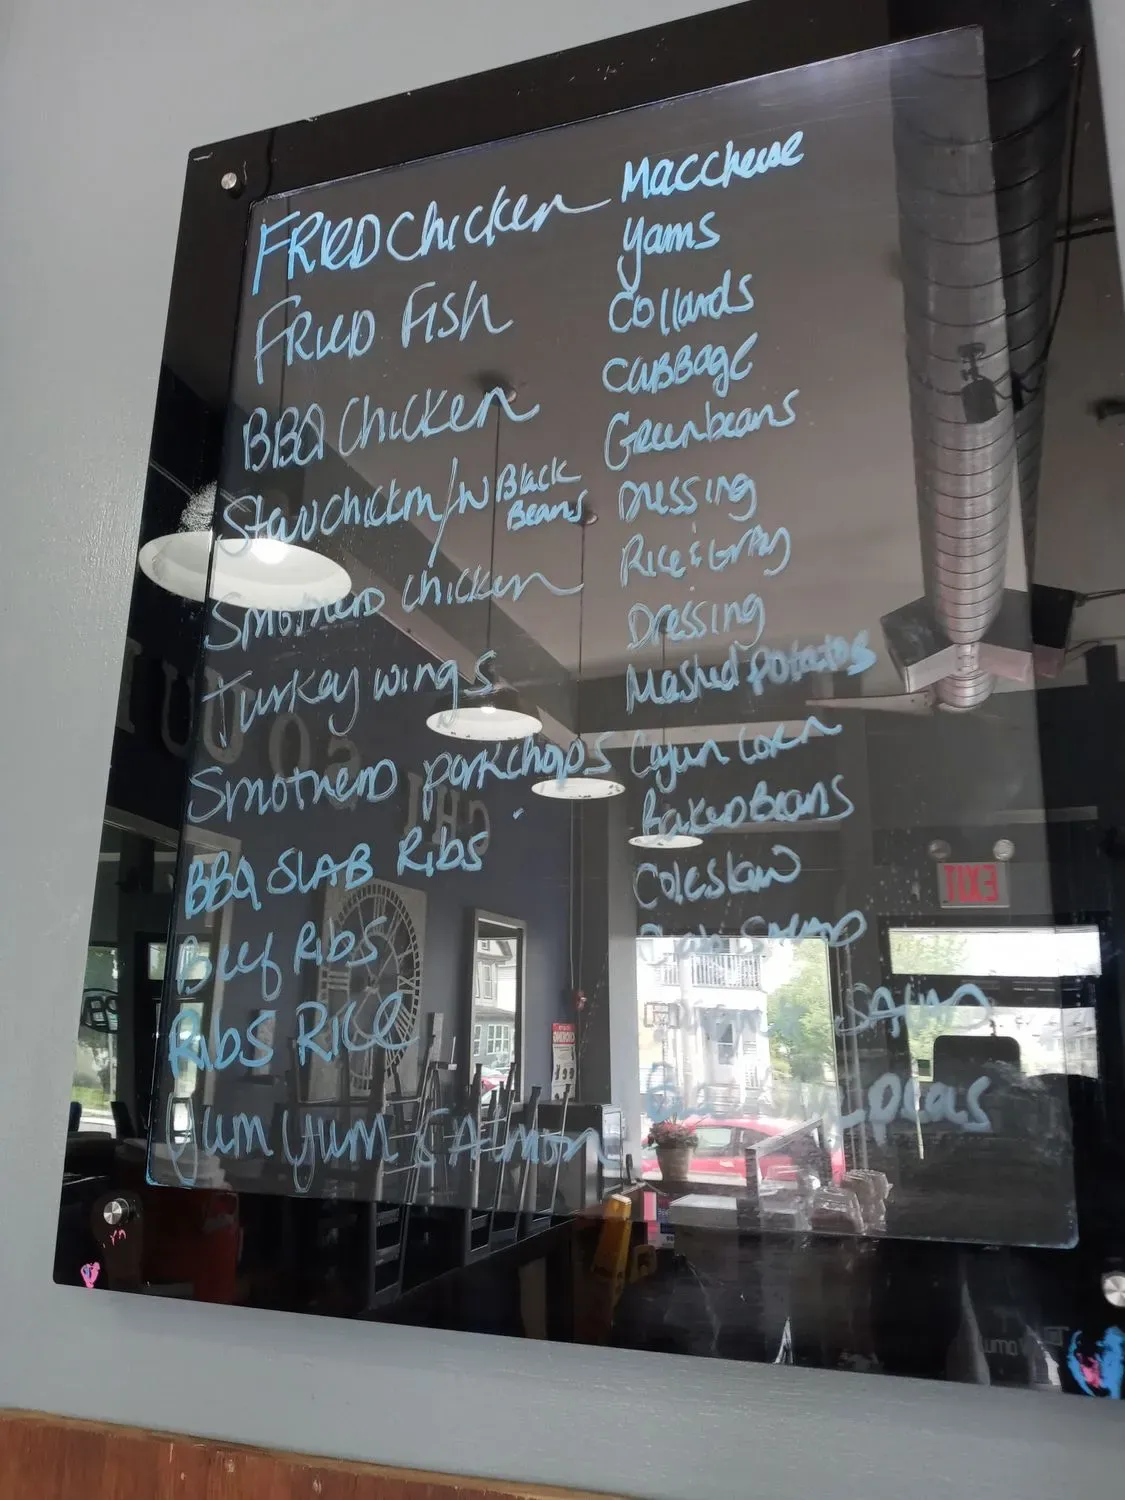 FRIED Chicken
FRIED Fish
BBQ Chicken
Stew chicken/w Black
Beans
Smothered chicken
Turkey wings
Smothered porkchops
BBQ SLAB Ribs
Beef Ribs
Ribs Rice
Yum Yum & Salmon
Maccheese
Yams
Collards
CABBAGE
Greenbeans
Dressing
Rice & Gravy
Dressing
Mashed potatoes
Cajun Corn
Baked Beans
Coleslaw
SALAD
SALAD
peas
EXIT